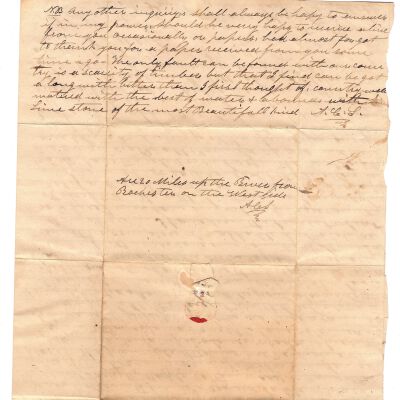 NB Any other inquiry's shall always be happy to answer
if in my power. Should be very happy to receive a line
from you occasionally or papers had almost forgot
to thank you for a paper received from you some
time ago. The only fault can be found with our coun
try is a scarcity of timber but that I find can be got
along with better than I first thought of. country well
watered with the best of water &
Lime stone of the most Beautifull kind A. C. S.
Are 20 Miles up the River from
Rochester on the West side